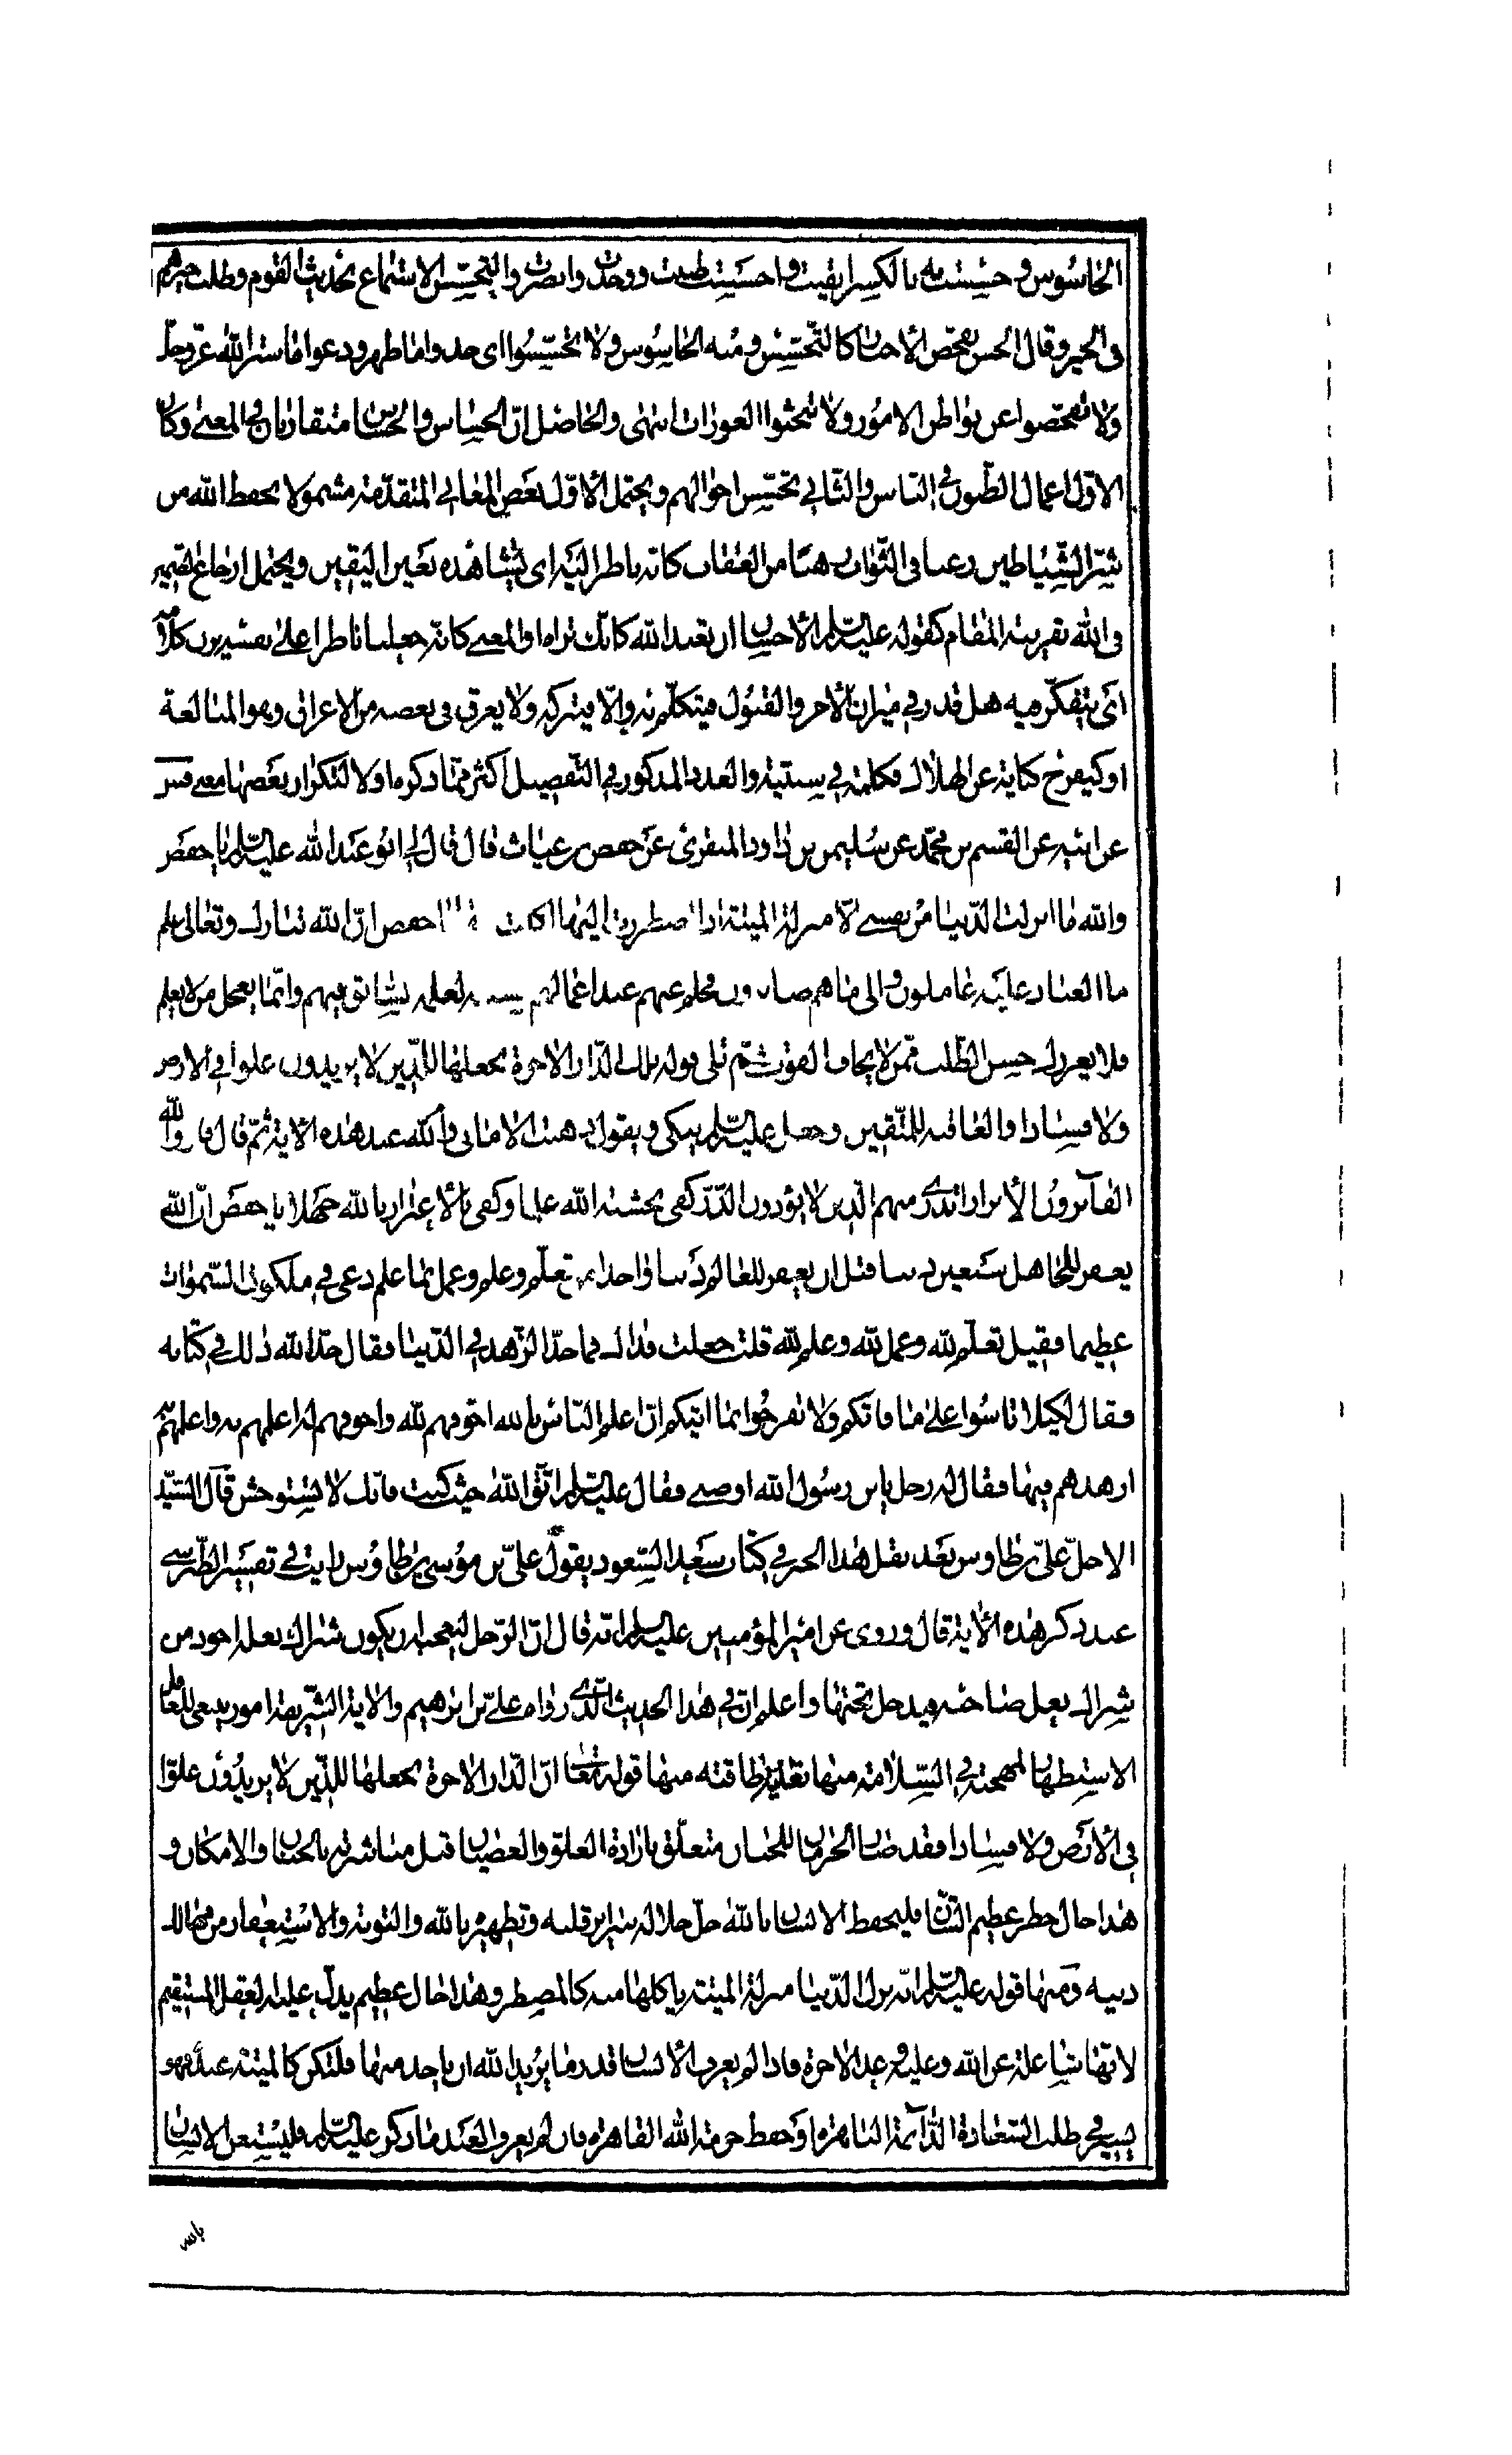 الحاسوس و حسست به بالكسر ايقنت و احسست ظننت و وجدت و ابصرت و التحسّس الاستماع لحديث القوم و طلب خبرهم
فى الخير و قال الجس تفحّص الاخبار كالتجسّس و منه الجاسوس و لا تجسّسوا اى خذوا ما ظهر و دعوا ما ستر الله عزّ و جلّ
و لا تفحصوا عن بواطن الامور و لا تبحثوا العورات انتهى و الحاصل انّ الحساس و الجساس متقاربان فى المعنى و كان
الاوّل اعمال الظنون فى الناس و الثانى تجسّس احوالهم و يحتمل الاوّل بعض المعانى المتقدّمة مشمولا بحفظ الله من
شرّ الشياطين رغبا فى الثواب رهبا من العقاب كانه ناظر اليه اى يشاهده بعين اليقين و يحتمل ارجاع الضمير
فى الله بقرينة المقام كقوله عليه السلم الاحسان ان تعبد الله كانّك تراه او المعنى كانه جعل ناظرا على نفسه يزن كلامه
اى يتفكّر فيه هل قدر فى ميزان الاجر و القبول فيتكلّم به و الّا فيتركه و لا يعرق فى بغضه من الاعراق و هو المبالغة
او كيفرح كناية عن الهلاك فكلمة فى سببيّة و العدد المذكور فى التفصيل اكثر ممّا ذكره اولا لتكرار بعضها معنى فس
عن ابيه عن القسم بن محمّد عن سليمن بن داود المنقرى عن حفص بن غياث قال قال لى ابو عبد الله عليه السلم يا حفص
و الله ما انزلت الدّنيا من نفسى الّا منزلة الميتة اذا اضطررت اليها اكلت يا حفص انّ الله تبارك و تعالى علم
ما العباد عليه عاملون و الى ما هم صائرون فحلم عنهم عند اعمالهم لعلمه السابق فيهم و انّما يعجل من لا يعلم
فلا يغرنك حسن الطّلب ممّن لا يخاف الفوت ثمّ تلى قوله تلك الدّار الاخرة نجعلها للّذين لا يريدون علوا فى الارض
و لا فسادا و العاقبة للمتّقين و جعل عليه السلم يبكى و يقول ذهبت الامانى و الله عند هذه الاية ثمّ قال فاز و الله
الفائزون الابرار اتدرى من هم الّذين لا يؤذون الذرّ كفى بخشية الله علما و كفى بالاغترار بالله جهلا يا حفص انّ الله
يغفر للجاهل سبعين ذنبا قبل ان يغفر للعالم ذنبا واحدا من تعلّم و علم و عمل بما علم دعى فى ملكوت السّموات
عظيما فقيل تعلّم لله و عمل لله و علم لله قلت جعلت فداك فما حدّ الزّهد فى الدّنيا فقال حدّ الله ذلك فى كتابه
فقال لكيلا تاسوا على ما فاتكم و لا تفرحوا بما اتيكم انّ اعلم النّاس بالله اخوفهم لله و اخوفهم له اعلمهم به و اعلمهم به
ازهدهم فيها فقال له رجل يا بن رسول الله اوصنى فقال عليه السلم اتّق الله حيث كنت فانّك لا تستوحش قال السّيّد
الاجلّ علىّ بن طاوس بعد نقل هذا الخبر فى كتاب سعد السّعود يقول علىّ بن موسى بن طاوس رايت فى تفسير الطّبرسى
عند ذكر هذه الاية قال و روى عن امير المؤمنين عليه السلم انّه قال انّ الرّجل ليعجبه ان يكون شراك نعله اجود من
شراك نعل صاحبه فيدخل تحتها و اعلم انّ فى هذا الحديث الّذى رواه علىّ بن ابرهيم و الاية الشّريفة امور ينبغى للعاقل
الاستظهار لمهجته فى السّلامة منها بغاية طاقته منها قوله تعالى انّ الدّار الاخرة نجعلها للّذين لا يريدون علوّا
فى الارض و لا فسادا فقد صار الحرمان للجنان متعلّق بارادة العلوّ و العصيان قبل مباشرته بالجنان و الامكان و
هذا حال خطر عظيم الشّان فليحفظ الانسان بالله جلّ جلاله سراير قلبه و تطهيره بالله و التوبة و الاستغفار من مهالك
ذنبه و منها قوله عليه السلم انّه نزل الدّنيا منزلة الميتة ياكلها منه كالمضطر و هذا حال عظيم يدلّ عليه العقل المستقيم
لانّها شاغلة عن الله و عليه و عن الاخرة فاذا لم يعرف الانسان قدر ما يريد الله ان ياخذ منها فلتكن كالميتة عنده فهو
يسير فى طلب السّعادة الدّائمة الباهرة او حفظ حرمة الله القاهرة فان لم يعرف العبد ما ذكره عليه السلم فليستعن الانسان
بالله